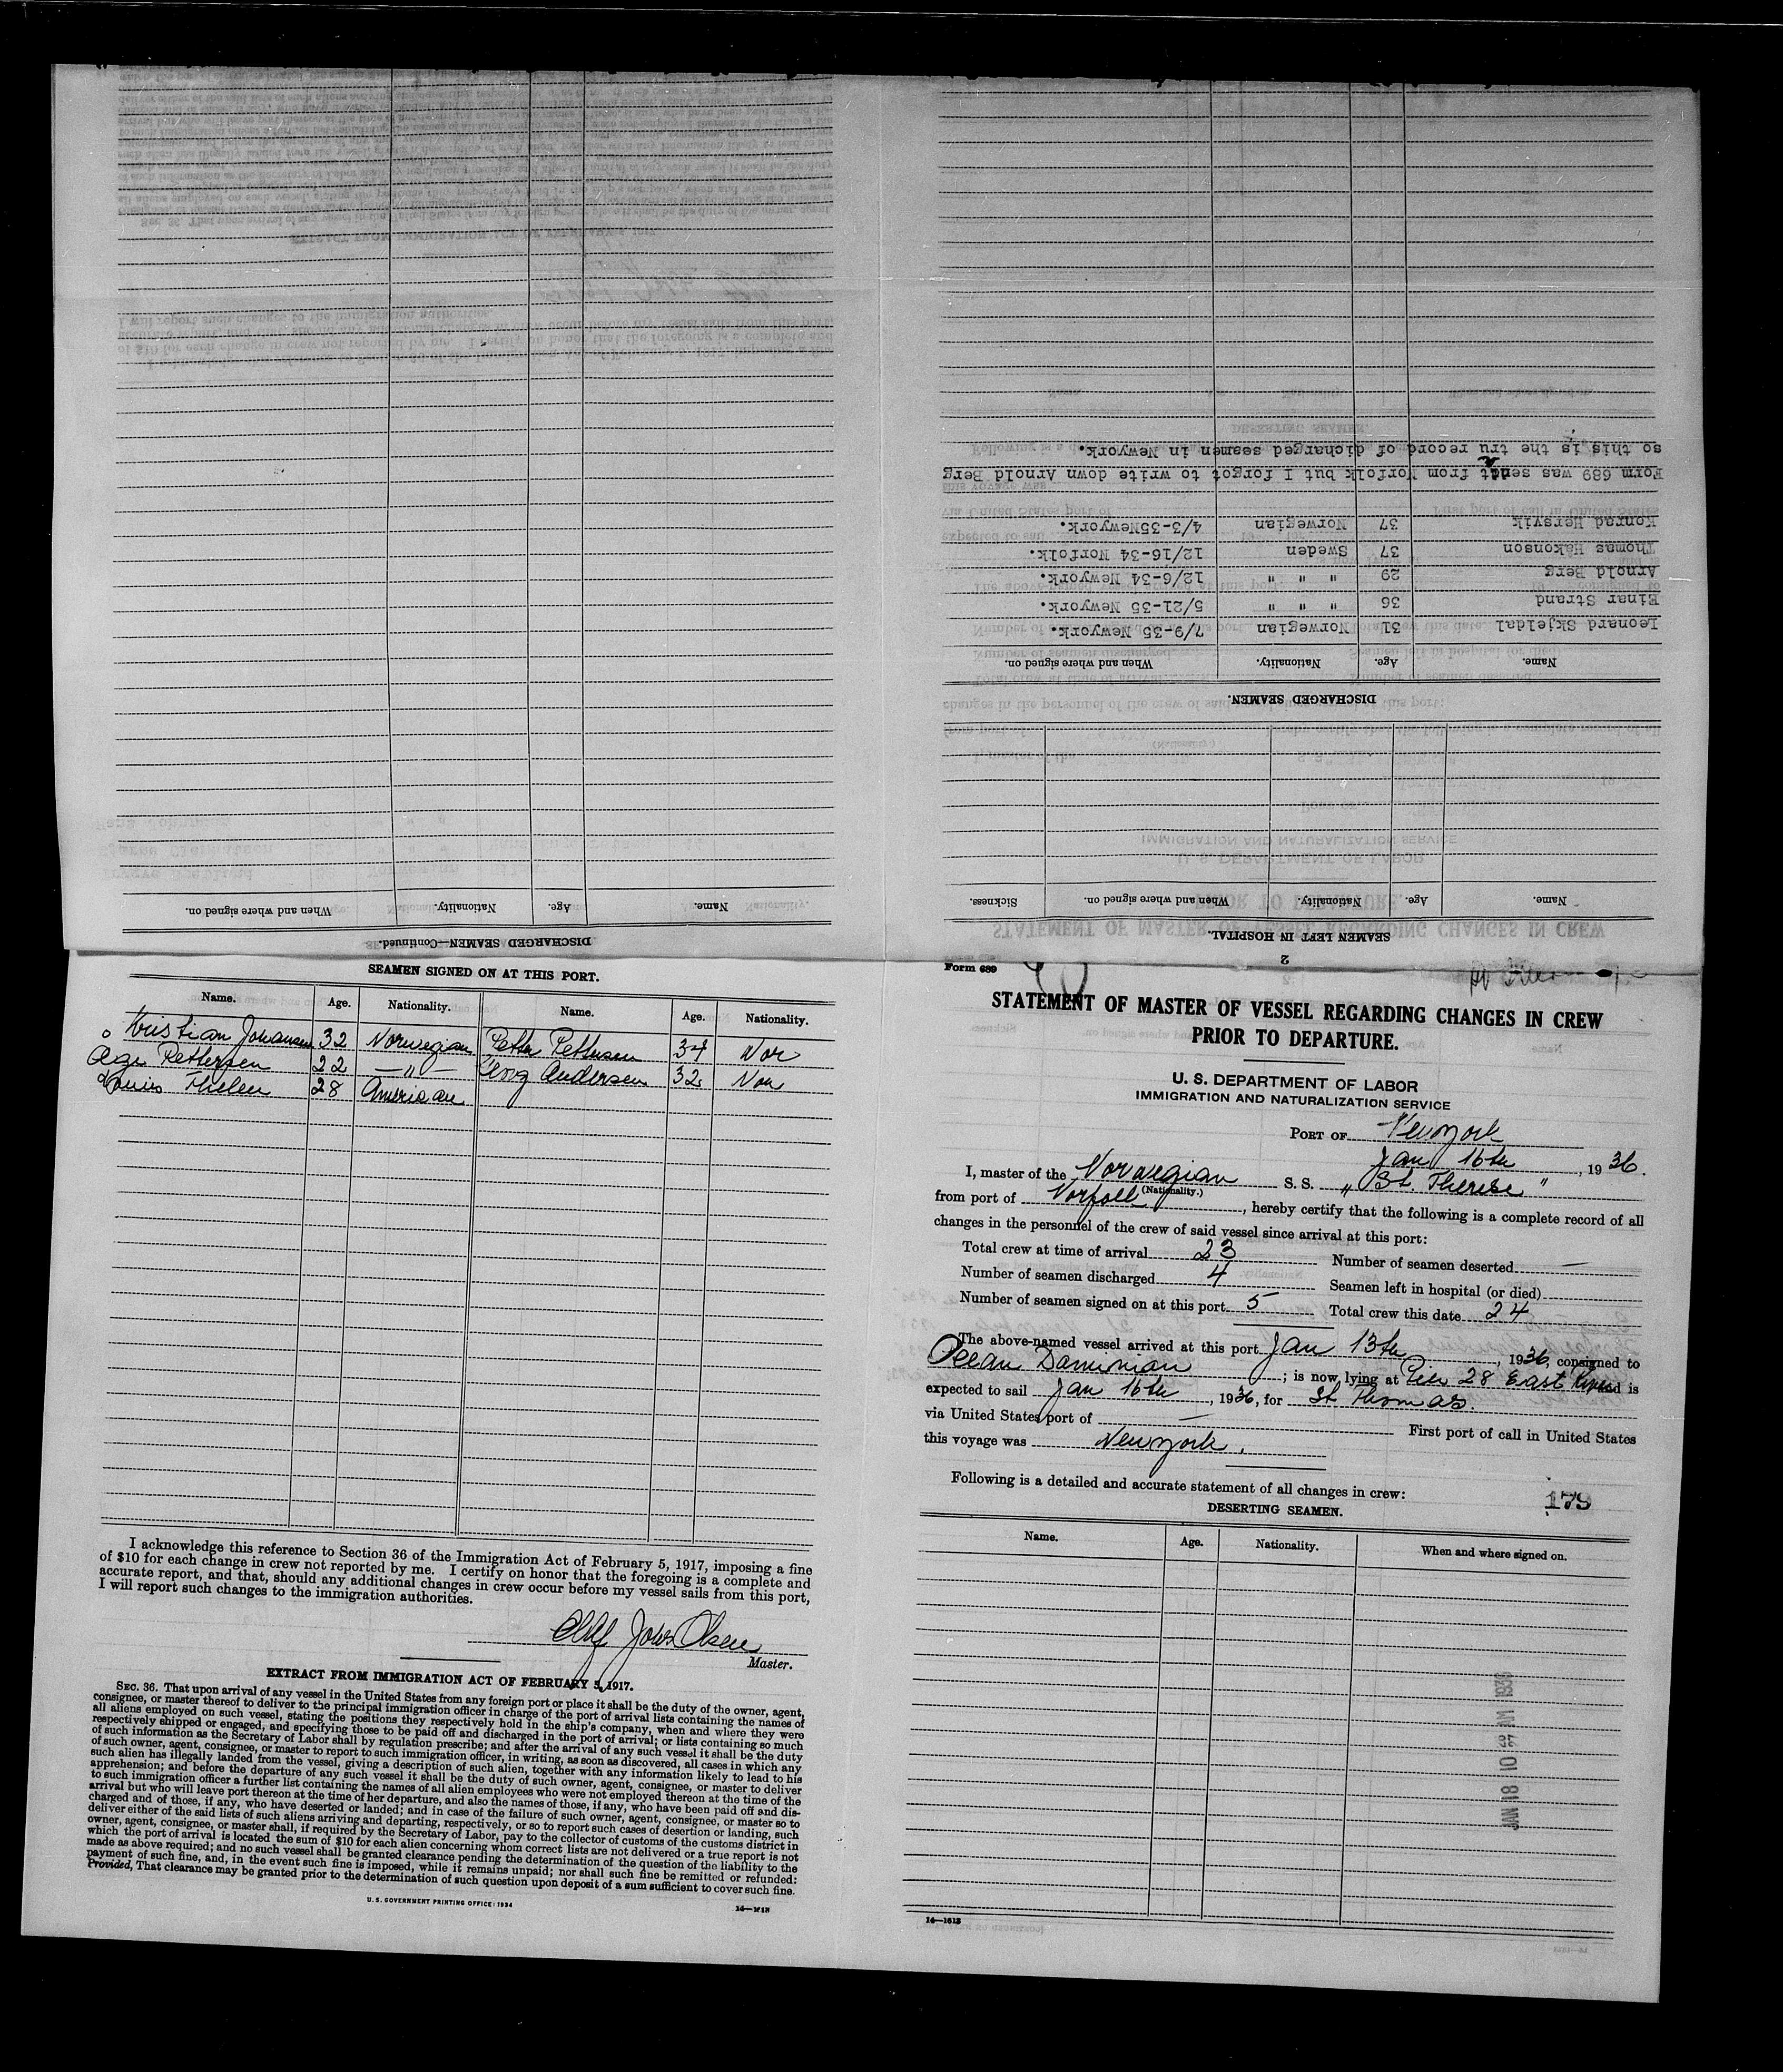 DISCHARGED SEAMEN—Continued.
Name. Age. Nationality. When and where signed on.
2
SEAMEN LEFT IN HOSPITAL.
Name. Age. Nationality. When and where signed on. Sickness.
DISCHARGED SEAMEN.
Name. Age. Nationality. When and where signed on.
Leonard Skjeldal 31 Norwegian 7/9-35 Newyork.
Einar Strand 36 " " " 5/21-35 Newyork.
Arnold Berg 29 " " " 12/6-34 Newyork.
Thomas Håkonson 37 Sweden 12/16-34 Norfolk.
Konrad Hersvik 37 Norwegian 4/3-35Newyork.
Form 689 was sent from Norfolk but I forgot to write down Arnold Berg
so this is the tru record of dicharged seamen in Newyork.
SEAMEN SIGNED ON AT THIS PORT.
Name. Age. Nationality. Name. Age. Nationality.
Kristian Johansen 32 Norwegian Petter Pettersen 34 Nor
Age Pettersen 22 —"— Georg Andersen 32 Nor
Louis Thelen 28 American
I acknowledge this reference to Section 36 of the Immigration Act of February 5, 1917, imposing a fine
of $10 for each change in crew not reported by me. I certify on honor that the foregoing is a complete and
accurate report, and that, should any additional changes in crew occur before my vessel sails from this port,
I will report such changes to the immigration authorities.
Olsen
Master.
EXTRACT FROM IMMIGRATION ACT OF FEBRUARY 5, 1917.
SEC. 36. That upon arrival of any vessel in the United States from any foreign port or place it shall be the duty of the owner, agent,
consignee, or master thereof to deliver to the principal immigration officer in charge of the port of arrival lists containing the names of
all aliens employed on such vessel, stating the positions they respectively hold in the ship's company, when and where they were
respectively shipped or engaged, and specifying those to be paid off and discharged in the port of arrival; or lists containing so much
of such information as the Secretary of Labor shall by regulation prescribe; and after the arrival of any such vessel it shall be the duty
of such owner, agent, consignee, or master to report to such immigration officer, in writing, as soon as discovered, all cases in which any
such alien has illegally landed from the vessel, giving a description of such alien, together with any information likely to lead to his
apprehension; and before the departure of any such vessel it shall be the duty of such owner, agent, consignee, or master to deliver
to such immigration officer a further list containing the names of all alien employees who were not employed thereon at the time of the
arrival but who will leave port thereon at the time of her departure, and also the names of those, if any, who have been paid off and dis-
charged and of those, if any, who have deserted or landed; and in case of the failure of such owner, agent, consignee, or master so to
deliver either of the said lists of such aliens arriving and departing, respectively, or so to report such cases of desertion or landing, such
owner, agent, consignee, or master shall, if required by the Secretary of Labor, pay to the collector of customs of the customs district in
which the port of arrival is located the sum of $10 for each alien concerning whom correct lists are not delivered or a true report is not
made as above required; and no such vessel shall be granted clearance pending the determination of the question of the liability to the
payment of such fine, and, in the event such fine is imposed, while it remains unpaid; nor shall such fine be remitted or refunded:
Provided, That clearance may be granted prior to the determination of such question upon deposit of a sum sufficient to cover such fine.
U. S. GOVERNMENT PRINTING OFFICE: 1934
Form 689
STATEMENT OF MASTER OF VESSEL REGARDING CHANGES IN CREW
PRIOR TO DEPARTURE.
U. S. DEPARTMENT OF LABOR
IMMIGRATION AND NATURALIZATION SERVICE
PORT OF Newyork
Jan 16th, 1936.
I, master of the Norwegian S. S. "St. Therese"
(Nationality.)
from port of Norfolk, hereby certify that the following is a complete record of all
changes in the personnel of the crew of said vessel since arrival at this port:
Total crew at time of arrival 23 Number of seamen deserted —
Number of seamen discharged 4 Seamen left in hospital (or died)
Number of seamen signed on at this port 5 Total crew this date 24
The above-named vessel arrived at this port Jan 13th, 1936, consigned to
Ocean Dominion; is now lying at Pier 28 East River and is
expected to sail Jan 16th, 1936, for St Thomas.
via United States port of — First port of call in United States
this voyage was Newyork.
Following is a detailed and accurate statement of all changes in crew:
179
DESERTING SEAMEN.
Name. Age. Nationality. When and where signed on.
14—1613